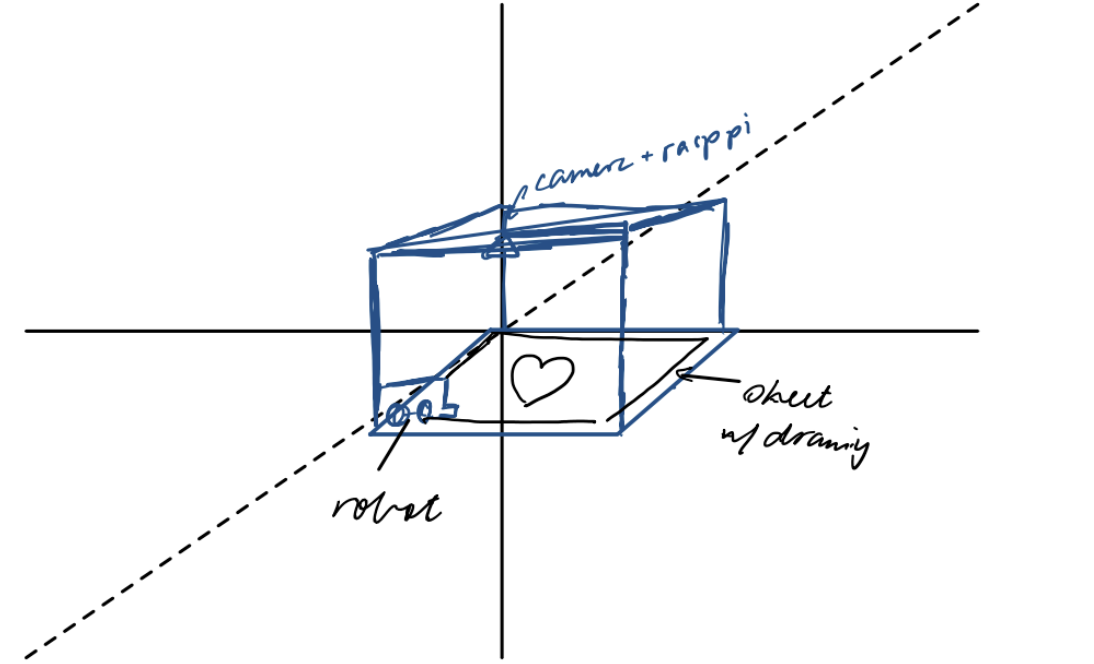 camera + rasppi
sheet
w/ drawing
robot